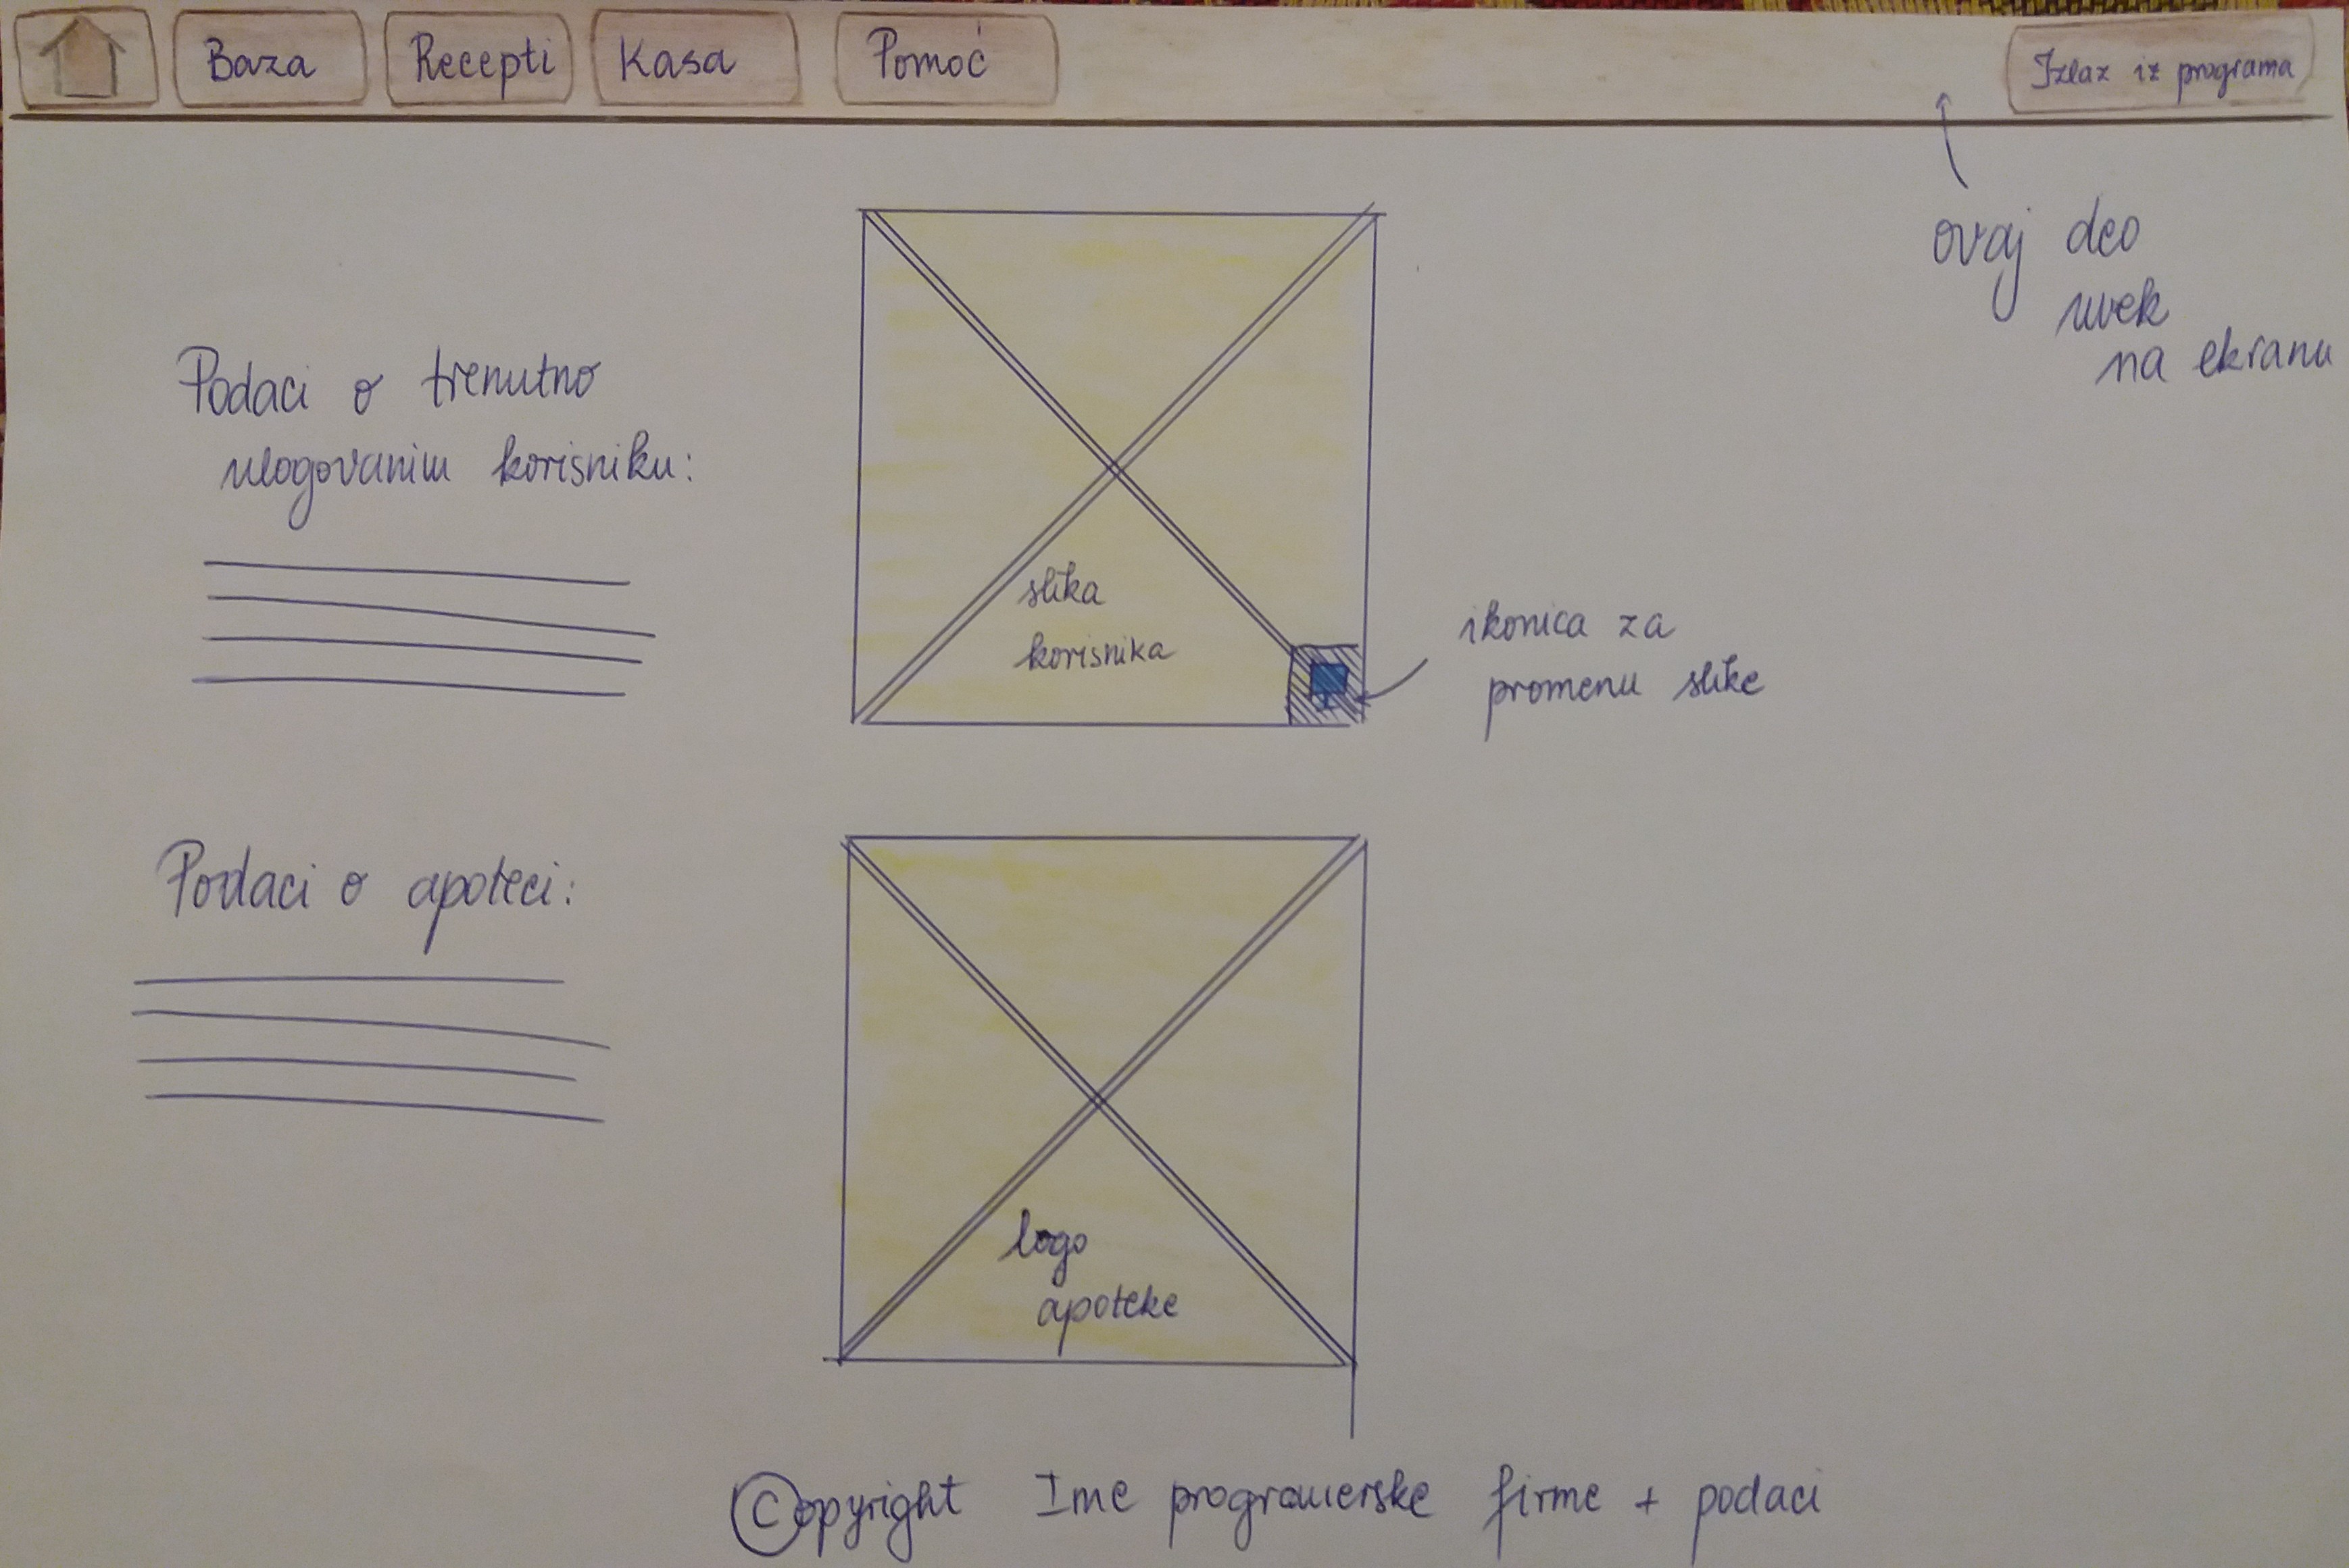 Baza Recepti Kasa Pomoć Izlaz iz programa
ovaj deo
uvek
na ekranu
Podaci o trenutno
ulogovanim korisniku:
slika
korisnika
ikonica za
promenu slike
Podaci o apoteci:
logo
apoteke
Copyright Ime programerske firme + podaci